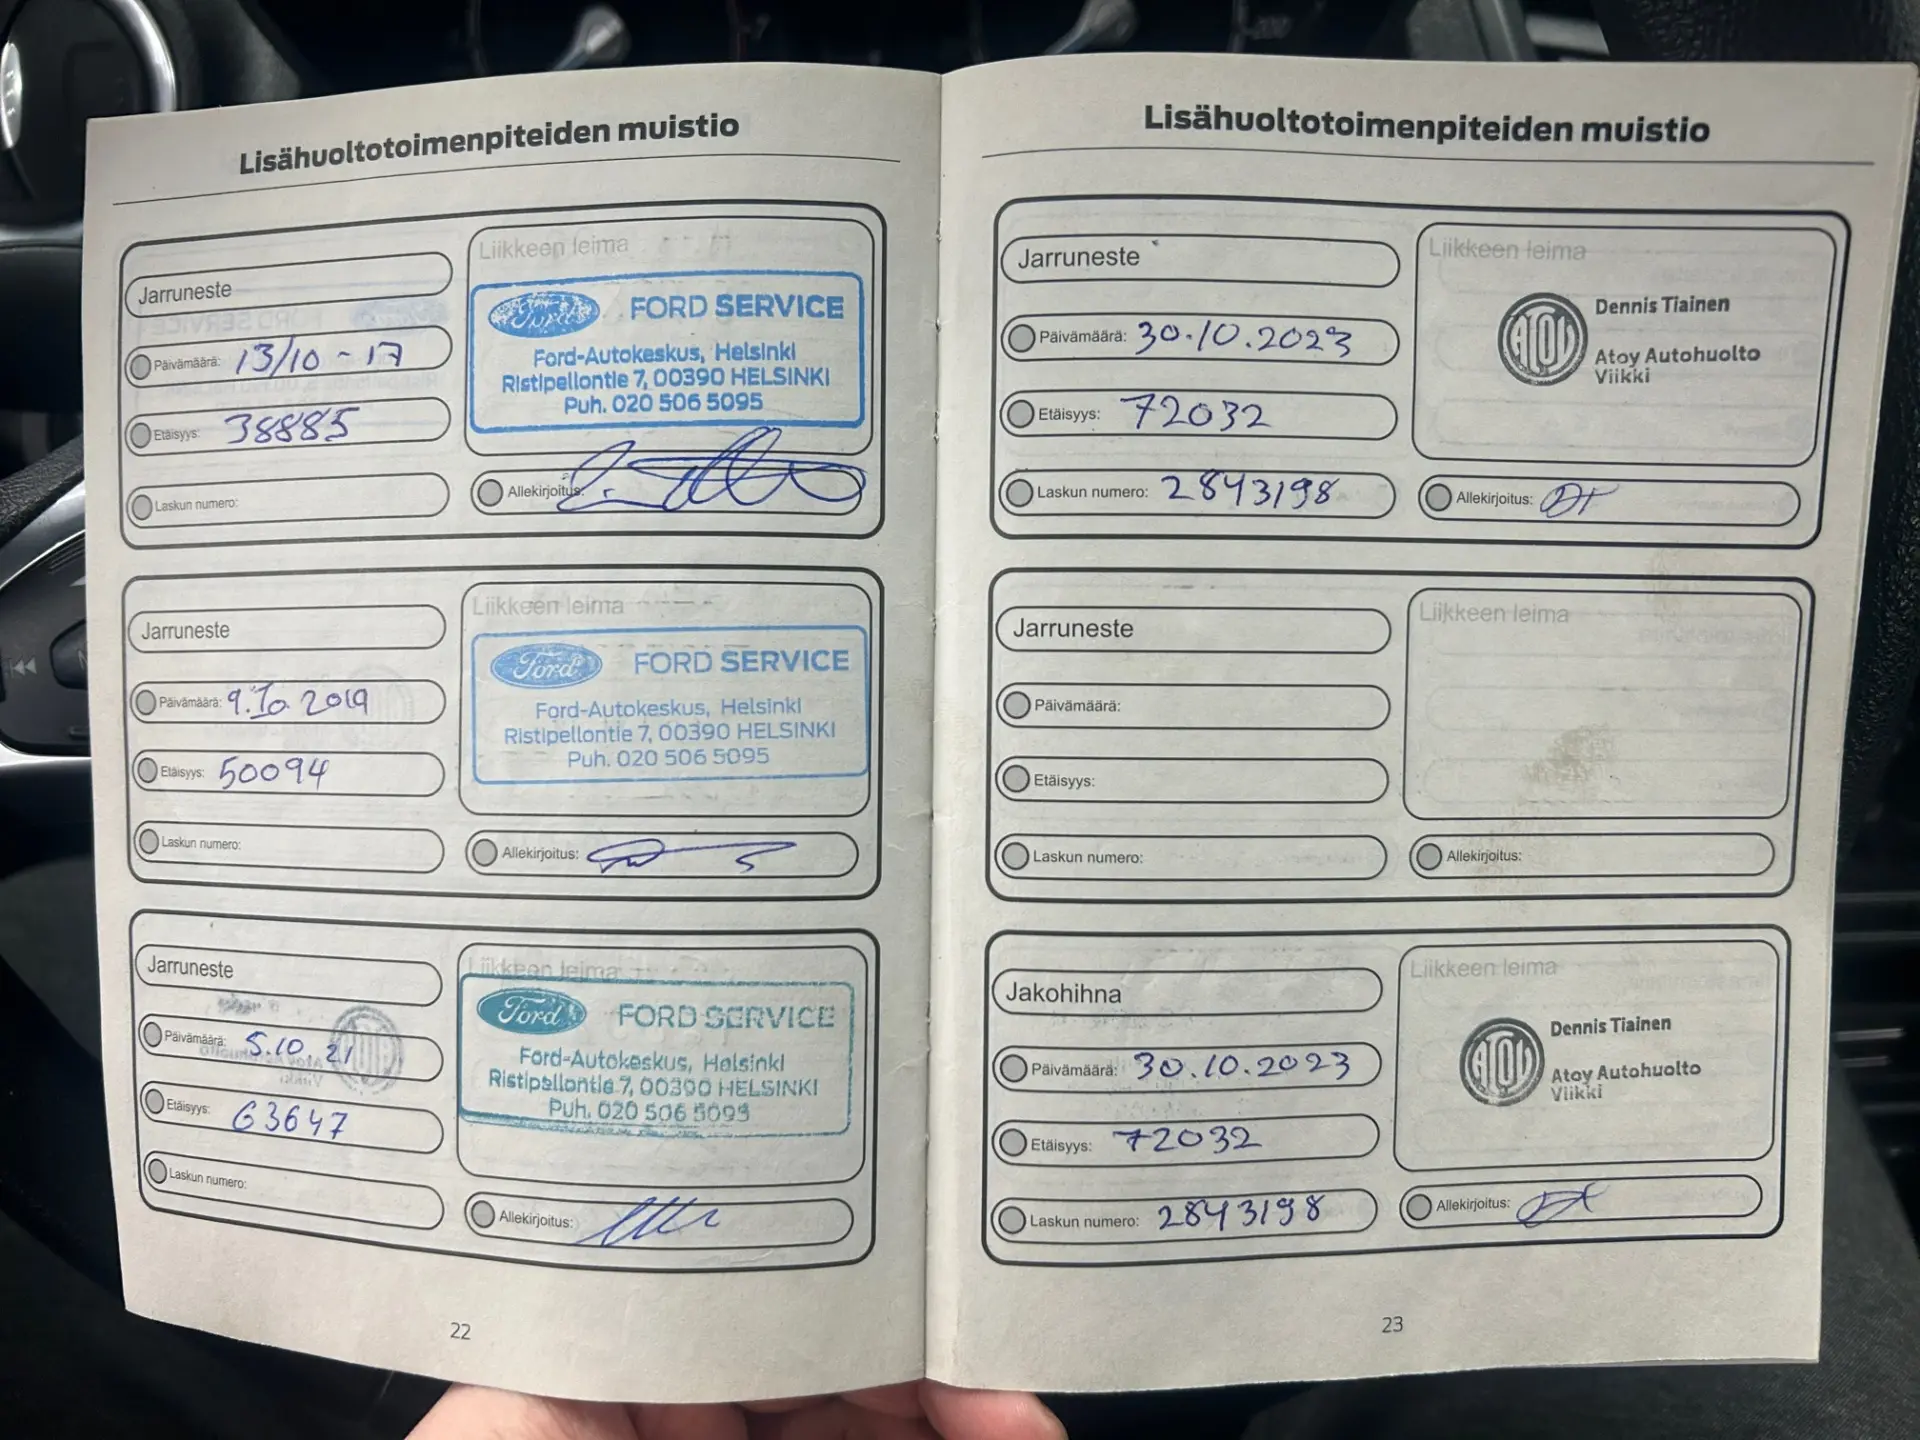 Lisähuoltotoimenpiteiden muistio
Jarruneste
Päivämäärä: 13/10 - 17
Etäisyys: 38885
Laskun numero:
Liikkeen leima
Ford
FORD SERVICE
Ford-Autokeskus, Helsinki
Ristipellontie 7, 00390 HELSINKI
Puh. 020 506 5095
Allekirjoitus:
Jarruneste
Päivämäärä: 9.10.2019
Etäisyys: 50094
Laskun numero:
Liikkeen leima
Ford
FORD SERVICE
Ford-Autokeskus, Helsinki
Ristipellontie 7, 00390 HELSINKI
Puh. 020 506 5095
Allekirjoitus:
Jarruneste
Päivämäärä: 5.10 21
Etäisyys: 63647
Laskun numero:
Liikkeen leima
Ford
FORD SERVICE
Ford-Autokeskus, Helsinki
Ristipellontie 7, 00390 HELSINKI
Puh. 020 506 5095
Allekirjoitus:
22
Lisähuoltotoimenpiteiden muistio
Jarruneste
Päivämäärä: 30.10.2023
Etäisyys: 72032
Laskun numero: 2843198
Liikkeen leima
ATOY
Dennis Tiainen
Atoy Autohuolto
Viikki
Allekirjoitus: DT
Jarruneste
Päivämäärä:
Etäisyys:
Laskun numero:
Liikkeen leima
Allekirjoitus:
Jakohihna
Päivämäärä: 30.10.2023
Etäisyys: 72032
Laskun numero: 2843198
Liikkeen leima
ATOY
Dennis Tiainen
Atoy Autohuolto
Viikki
Allekirjoitus: DT
23